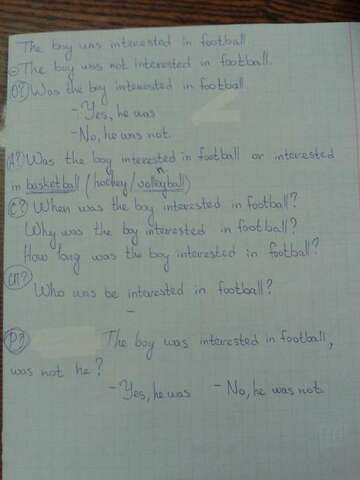 The boy was interested in football
⊖ The boy was not interested in football.
O? Was the boy interested in football.
- Yes, he was
- No, he was not.
A? Was the boy interested in football or interested
in basketball (hockey/volleyball)
C? When was the boy interested in football?
Why was the boy interested in football?
How long was the boy interested in football?
СП? Who was be interested in football?
-
P? The boy was interested in football,
was not he?
- Yes, he was - No, he was not.